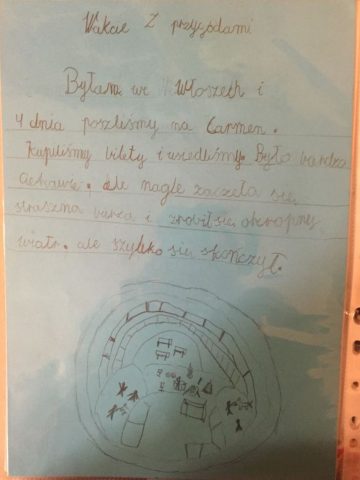 Wakcie z przygodami
Byłam we Włoszech i
4 dnia poszliśmy na Carmen.
Kupiliśmy bilety i uśedliśmy. Było bardzo
ciekawie, ale nagle zaczeła się
straszna burza i zrobił się okropny
wiatr. ale szybko się skończył.